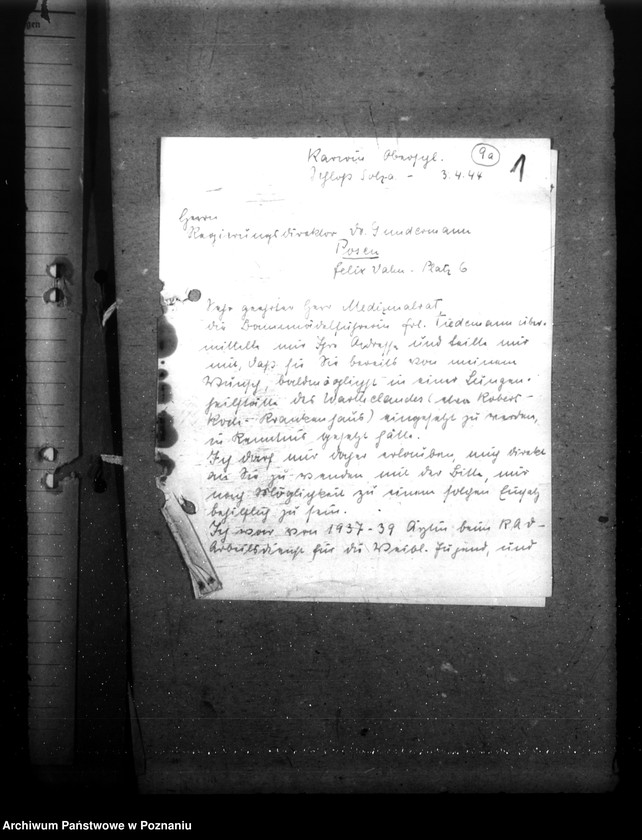 Karwin Oberschl.
9a
1
Schloß Solza - 3.4.44
Herrn
Regierungsdirektor Dr. Gundermann
Posen
Felix Dahn-Platz 6
Sehr geehrter Herr Medizinalrat
die Bannmädelführerin Frl. Tiedemann über-
mittelte mir Ihre Adresse und teilte mir
mit, daß sie Sie bereits von meinem
Wunsch, baldmöglichst in einer Lungen-
heilstätte des Warthelandes (oder Robert-
Koch-Krankenhaus) eingesetzt zu werden,
in Kenntnis gesetzt hätte.
Ich darf mir daher erlauben, mich direkt
an Sie zu wenden mit der Bitte, mir
nach Möglichkeit zu einem solchen Einsatz
behilflich zu sein.
Ich war von 1937-39 Ärztin beim RAD-
Arbeitsdienst für die weibl. Jugend, und
Archiwum Państwowe w Poznaniu